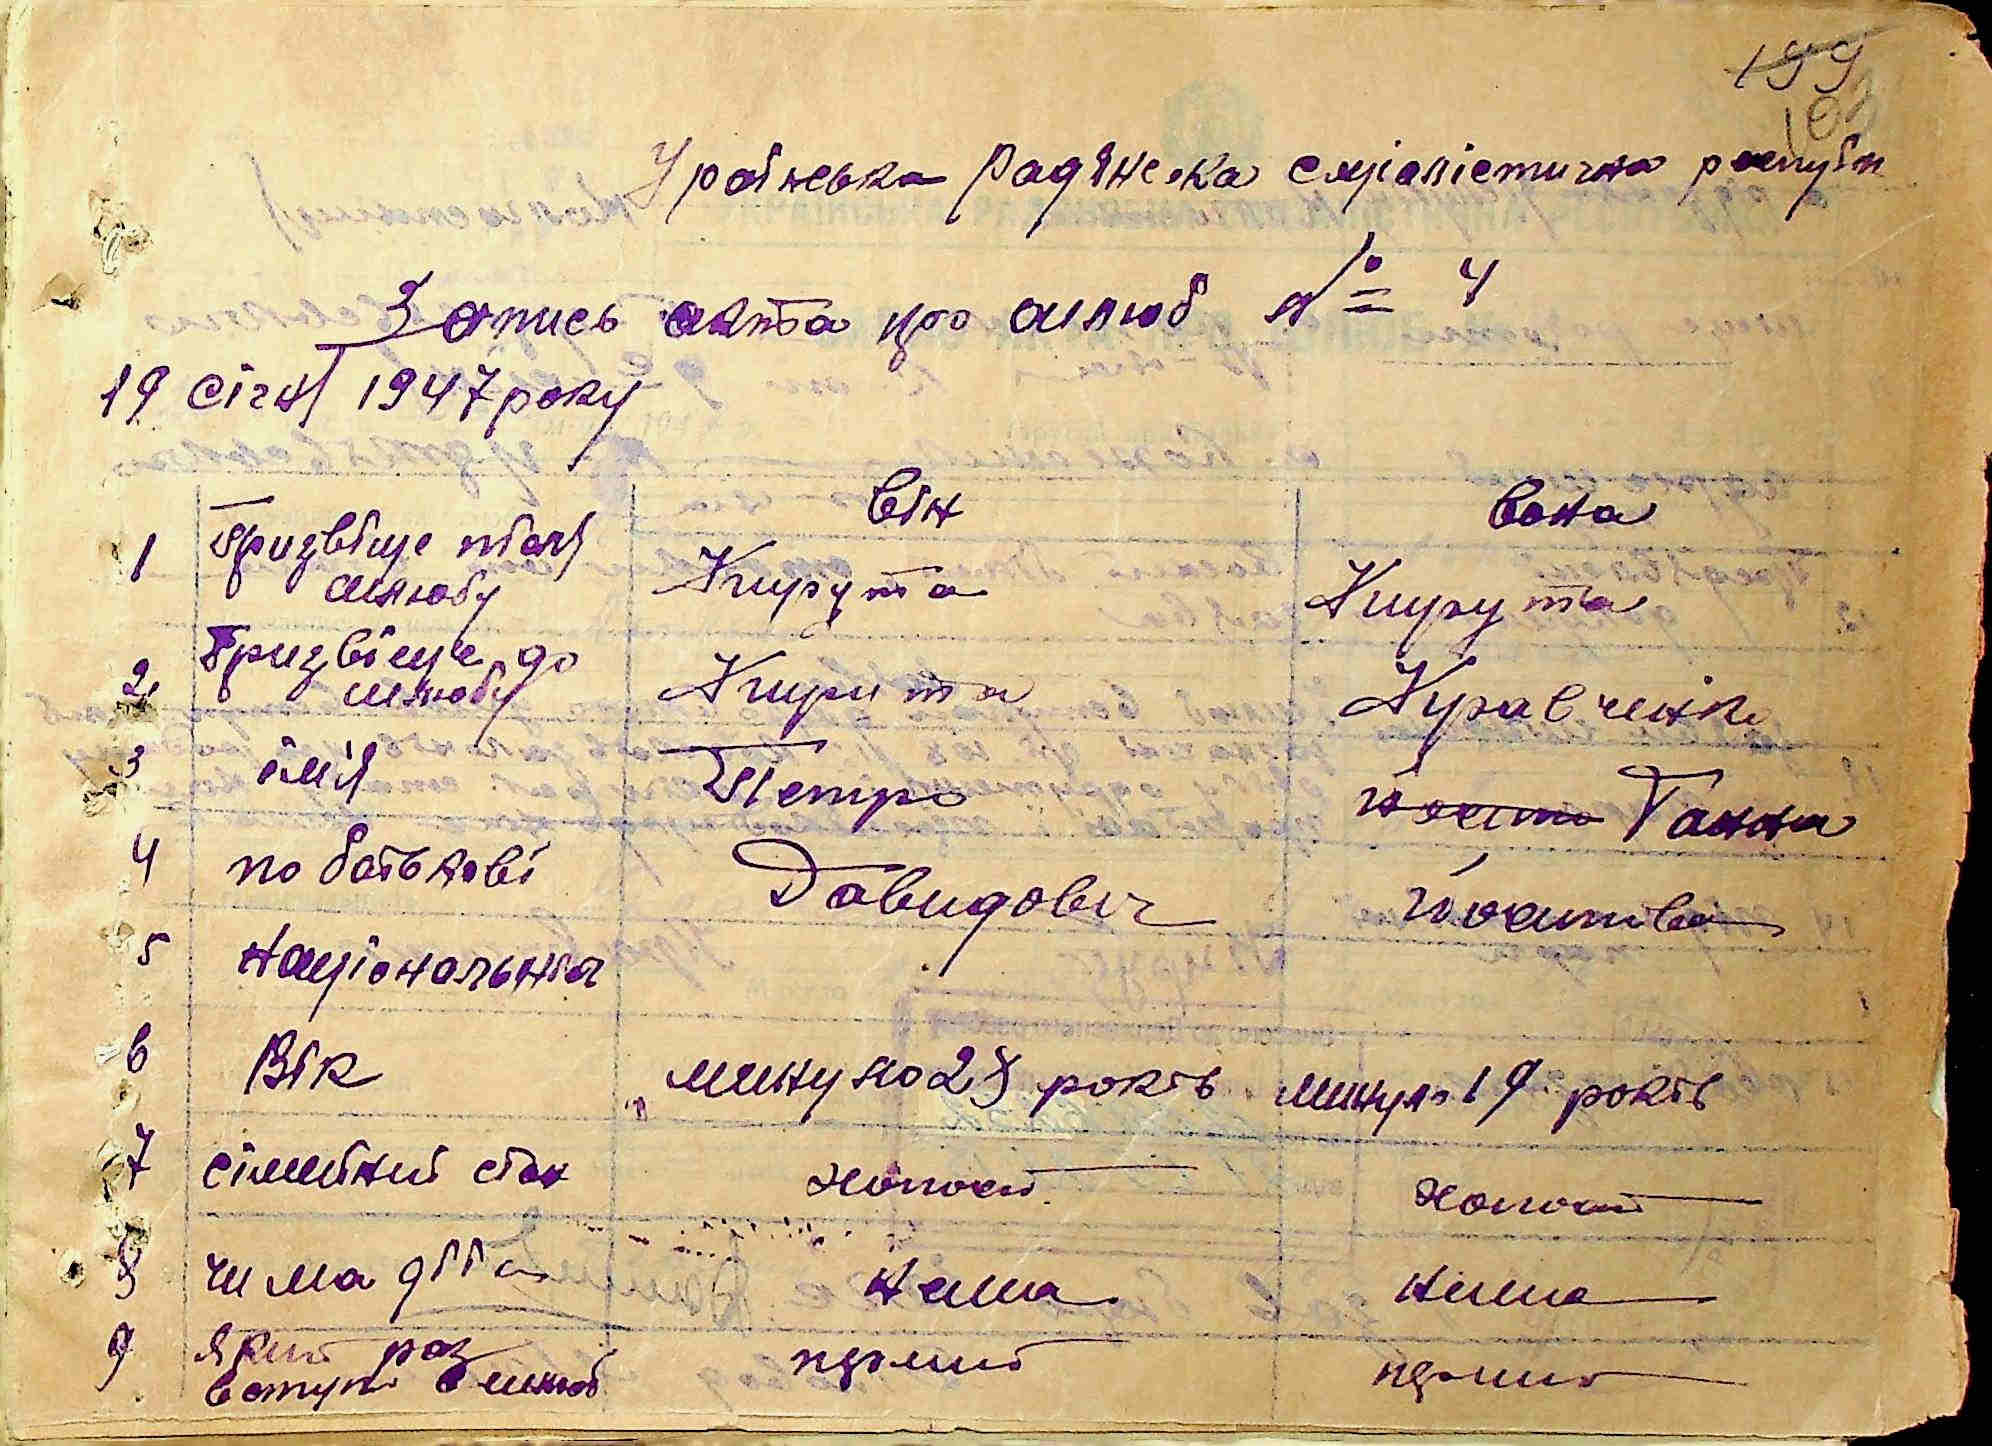 199
103
Українська Радянська соціалістична республ
Запись акта про шлюб № 4
19 січня 1947 року
він вона
1 Призвіще після шлюбу Кирута Кирута
2. Призвіще до шлюбу Кирита Кравченко
3 імя Петро Ганна
4 по батькові Давидович
5 Національність
6 Вік минуло 28 років минуло 19 років
7 сімейний стан холост холост
8 чи ма діти нема нема
9 який раз вступа в шлюб перший перший